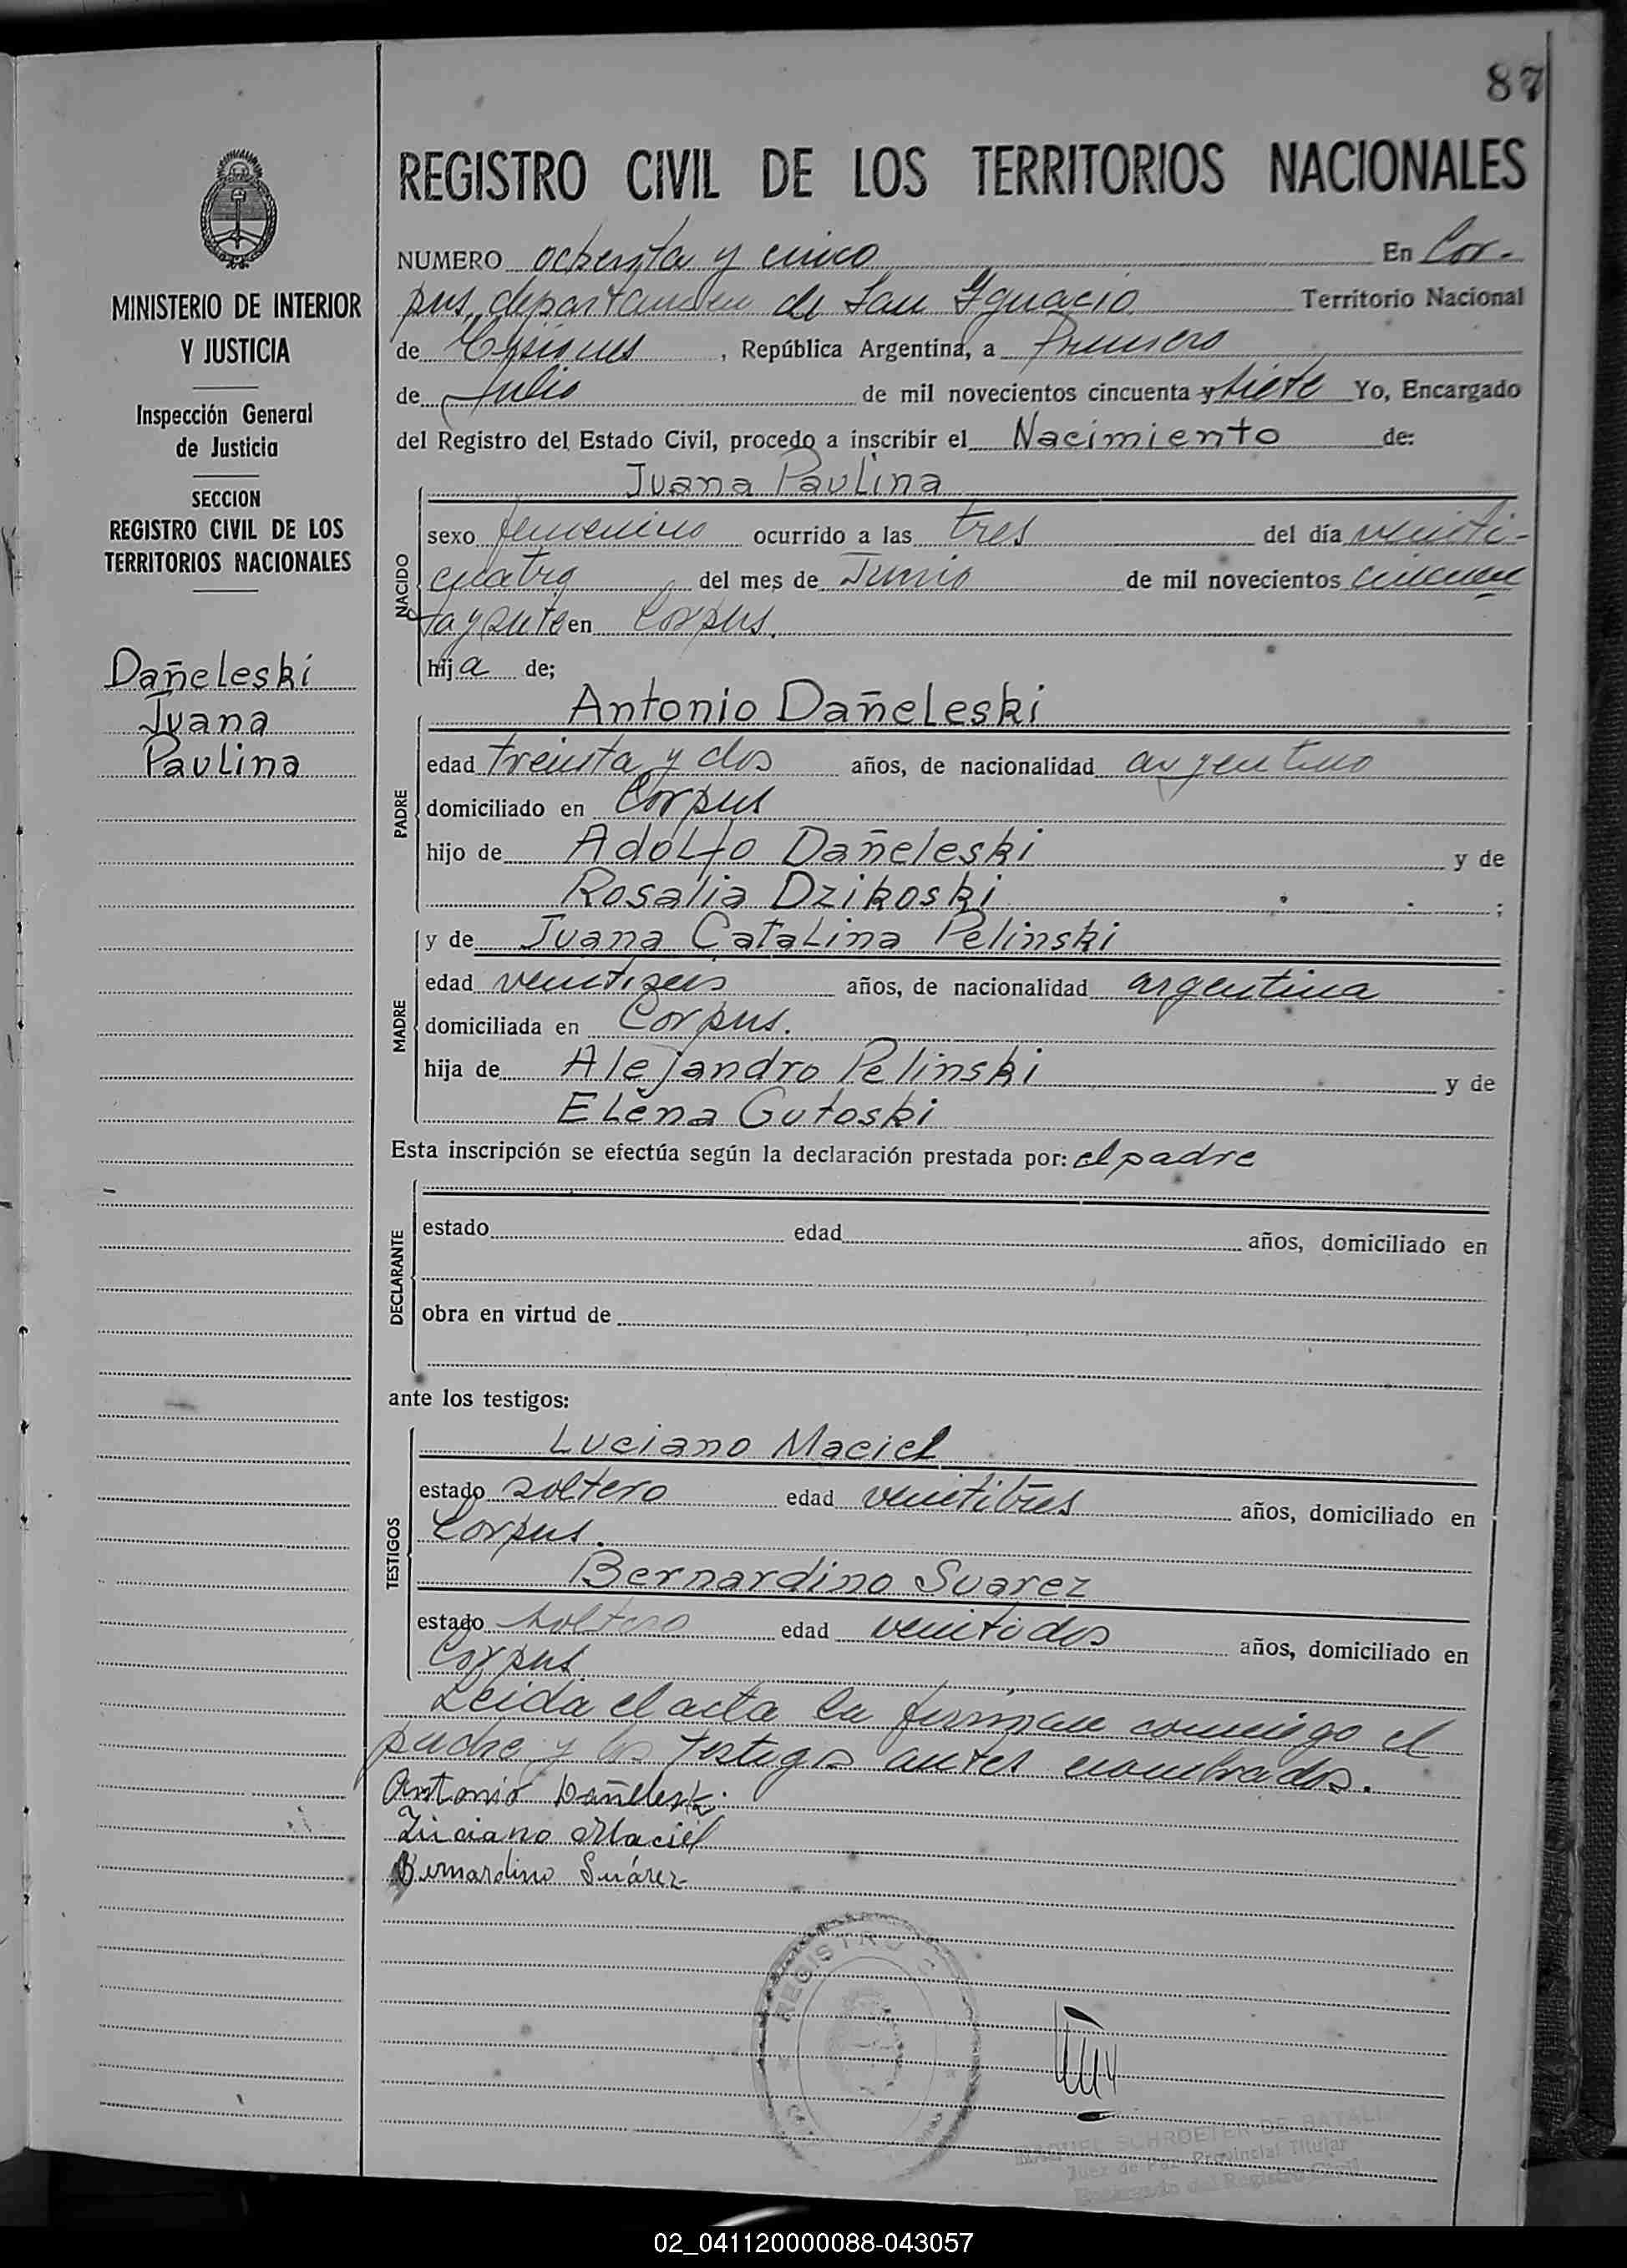 87
REGISTRO CIVIL DE LOS TERRITORIOS NACIONALES
NUMERO ochenta y cinco En Cor-
pus, departamen de San Ignacio Territorio Nacional
de Misiones, República Argentina, a Primero
de Julio de mil novecientos cincuenta y siete Yo, Encargado
del Registro del Estado Civil, procedo a inscribir el Nacimiento de:
Juana Paulina
NACIDO
sexo femenino ocurrido a las tres del día veinti-
cuatro del mes de Junio de mil novecientos cincuen
ta y siete en Corpus.
hija de;
Antonio Dañeleski
PADRE
edad treinta y dos años, de nacionalidad argentino
domiciliado en Corpus
hijo de Adolfo Dañeleski y de
Rosalia Dzikoski ;
y de Juana Catalina Pelinski
MADRE
edad veintiseis años, de nacionalidad argentina
domiciliada en Corpus.
hija de Alejandro Pelinski y de
Elena Gutoski
Esta inscripción se efectúa según la declaración prestada por: el padre
DECLARANTE
estado edad años, domiciliado en
obra en virtud de
ante los testigos:
TESTIGOS
Luciano Maciel
estado soltero edad veintitres años, domiciliado en
Corpus.
Bernardino Suarez
estado soltero edad veintidos años, domiciliado en
Corpus
Leida el acta la firman conmigo el
padre y los testigos antes nombrados.
Antonio Dañeleski
Luciano Maciel
Bernardino Suárez
REGISTRO
RAQUEL SCHROETER DE BATALL
Juez de Paz Provincial Titular
Encargado del Registro Civil
MINISTERIO DE INTERIOR
Y JUSTICIA
Inspección General
de Justicia
SECCION
REGISTRO CIVIL DE LOS
TERRITORIOS NACIONALES
Dañeleski
Juana
Paulina
02_041120000088-043057